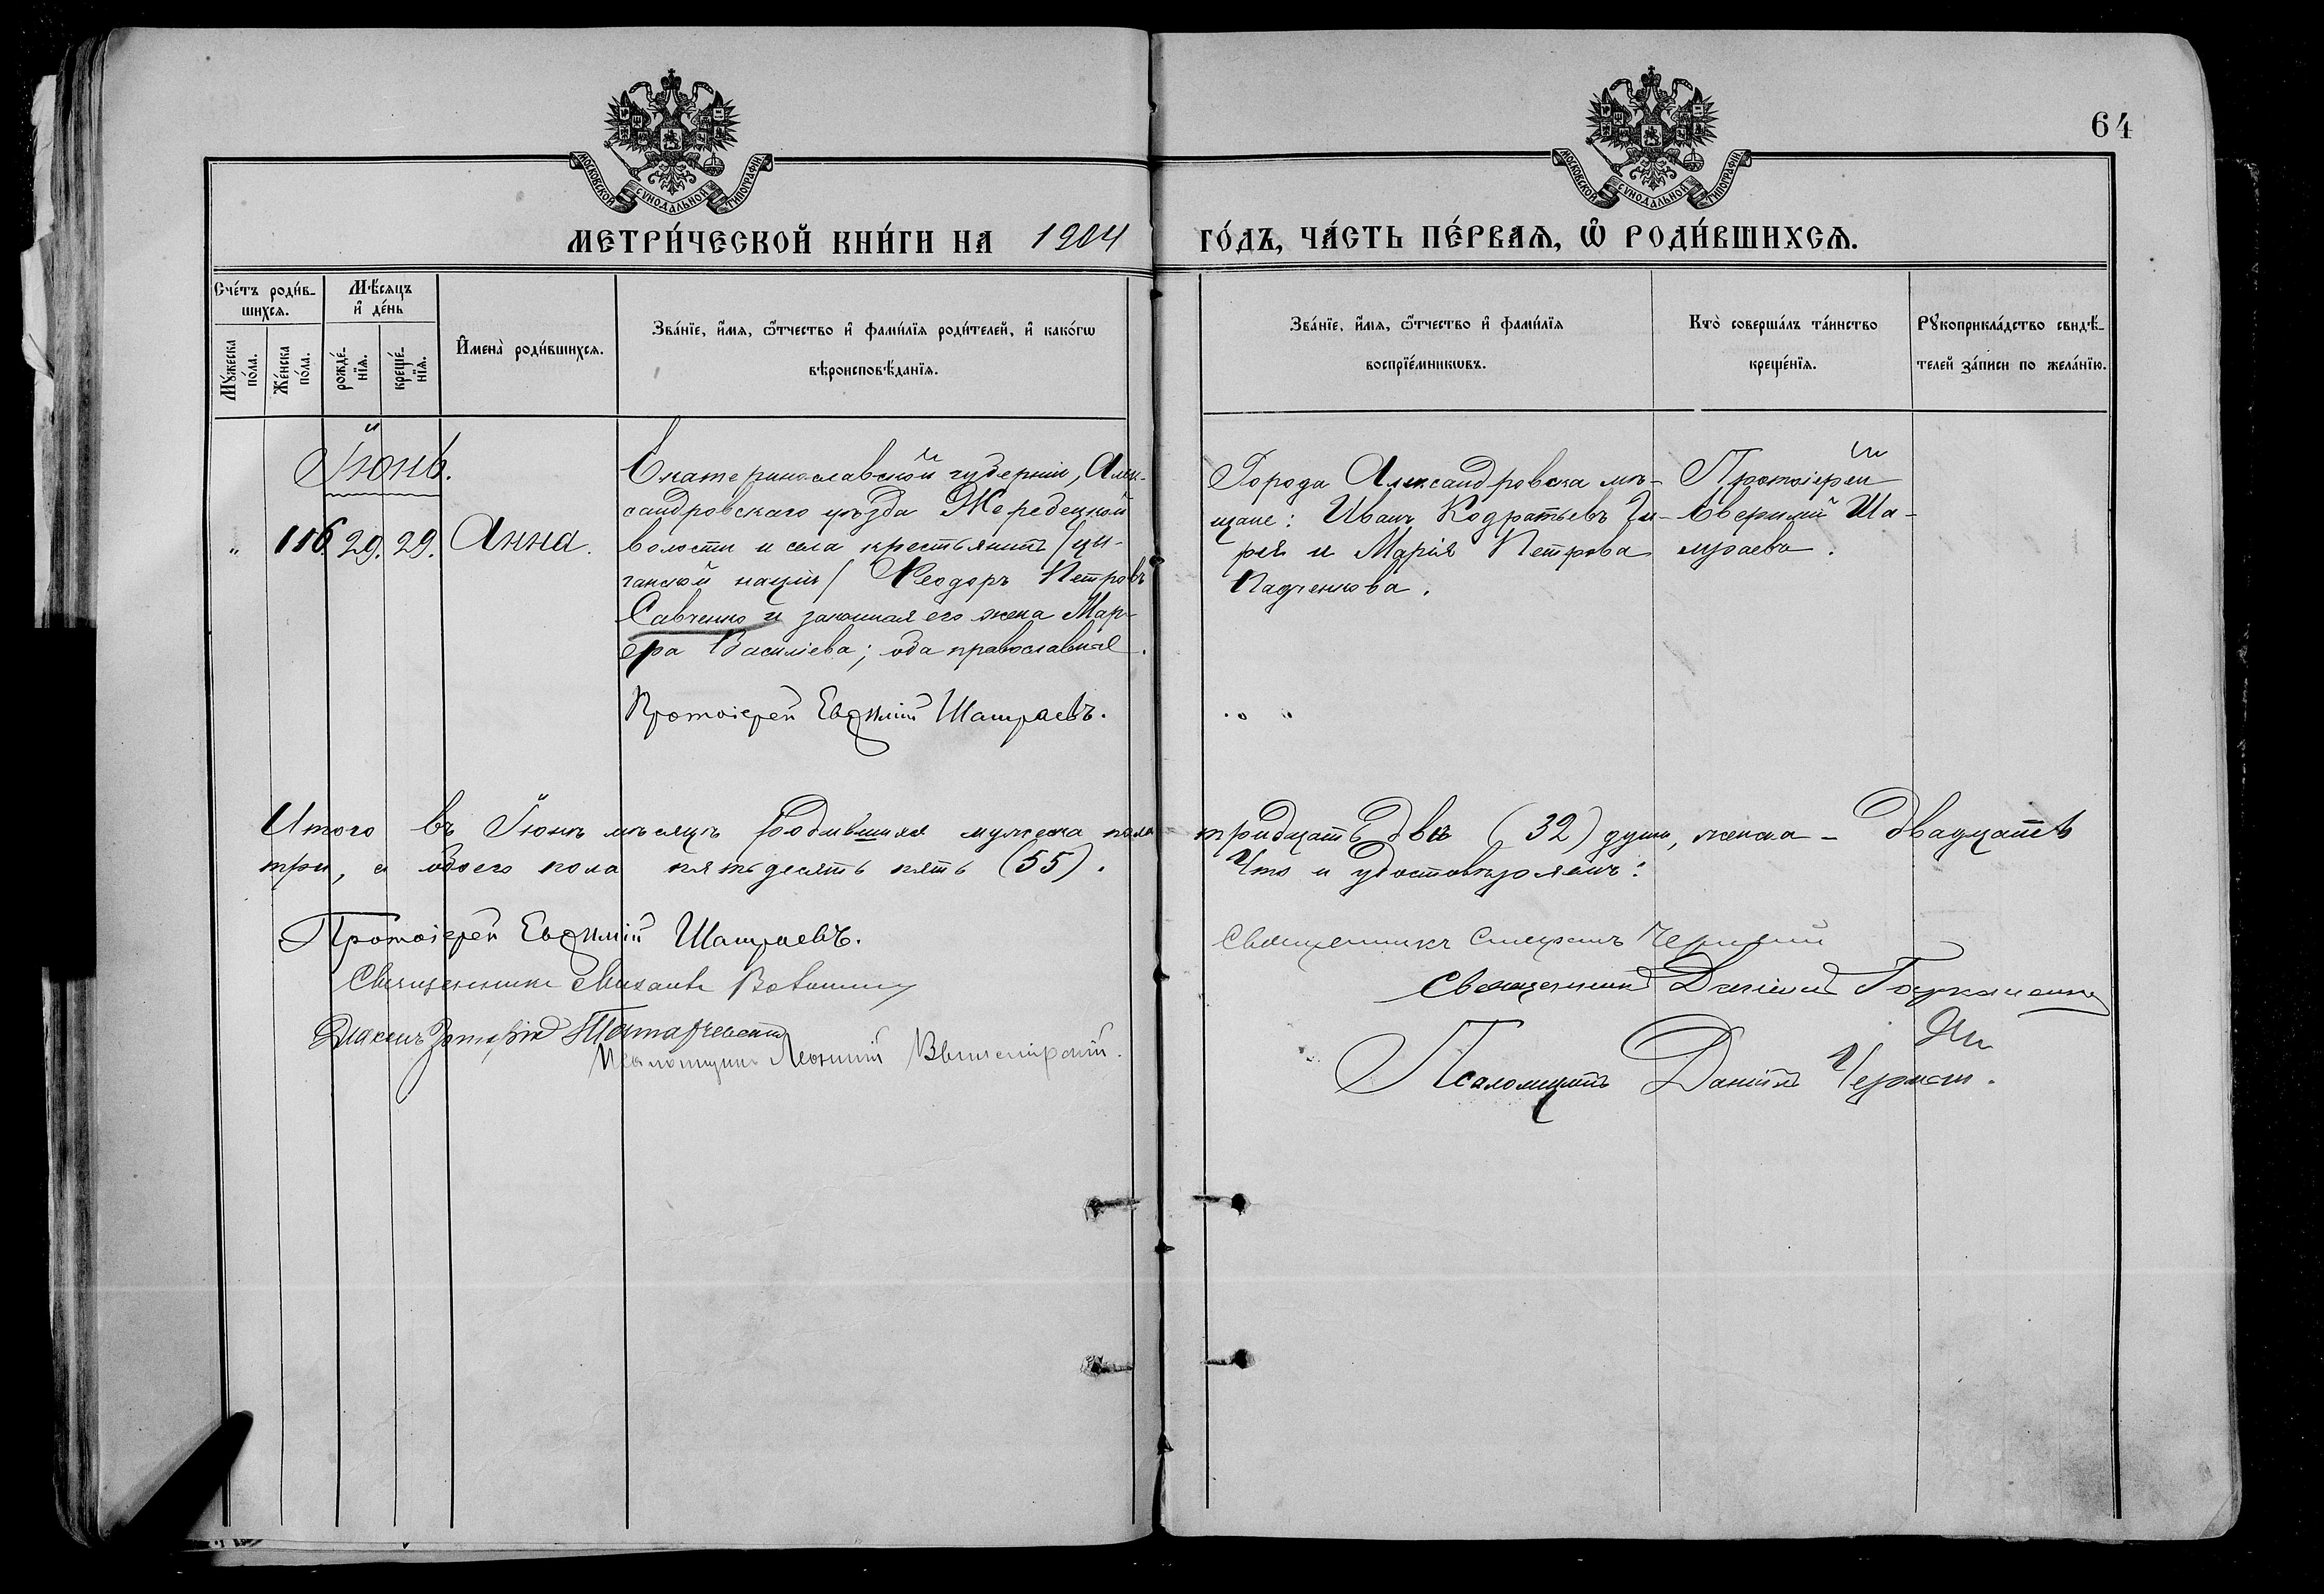 64
МОСКОВСКОЙ СѴНОДАЛЬНОЙ ТИПОГРАФІИ
МОСКОВСКОЙ СѴНОДАЛЬНОЙ ТИПОГРАФІИ
МЕТРИ́ЧЕСКОЙ КНИ́ГИ НА 1904 ГО́ДЪ, ЧА́СТЬ ПЕ́РВАѦ, Ѡ҆ РОДИ́ВШИХСѦ.
Сче́тъ роди́в-
шихсѧ.
Мꙋ́жеска по́ла.
Же́нска по́ла.
Мѣ́сяцъ
и҆ де́нь
рожде́-нїѧ.
креще́-нїѧ.
И҆мена̀ роди́вшихсѧ.
Зва́нїе, и҆́мѧ, ѻ҆́тчество и҆ фами́лїѧ роди́телей, и҆ како́гѡ
вѣроисповѣ́данїѧ.
Зва́нїе, и҆́мѧ, ѻ҆́тчество и҆ фами́лїѧ
воспрїе́мникѡвъ.
Кто̀ соверша́лъ та́инство
креще́нїѧ.
Рꙋкоприкла́дство свидѣ́-
телей за́писи по жела́нїю.
Іюнь.
" 116. 29. 29. Анна.
Екатеринославской губерніи, Алек-
сандровскаго уѣзда Жеребецкой
волости и села крестьянинъ /цы-
ганской націи/ Ѳеодоръ Петровъ
Савченко и законная его жена Мар-
ѳа Василіева; оба православные.
Протоіерей Евѳимій Шамраевъ.
Города Александровска мѣ-
щане: Иванъ Кодратьевъ Ги-
рей и Марія Петрова
Падченкова.
Протоіерей
Евѳимій Ша-
мраевъ.
Итого въ Іюнѣ мѣсяцѣ родившихся мужеска пола тридцать два (32) души, женска - двадцать
три, а обоего пола пятьдесятъ пять (55). Что и удостовѣряемъ:
Протоіерей Евѳимій Шамраевъ.
Священникъ Михаилъ
Діаконъ
Псаломщикъ Леонтій
Священникъ
Священникъ
Псаломщикъ Даніилъ